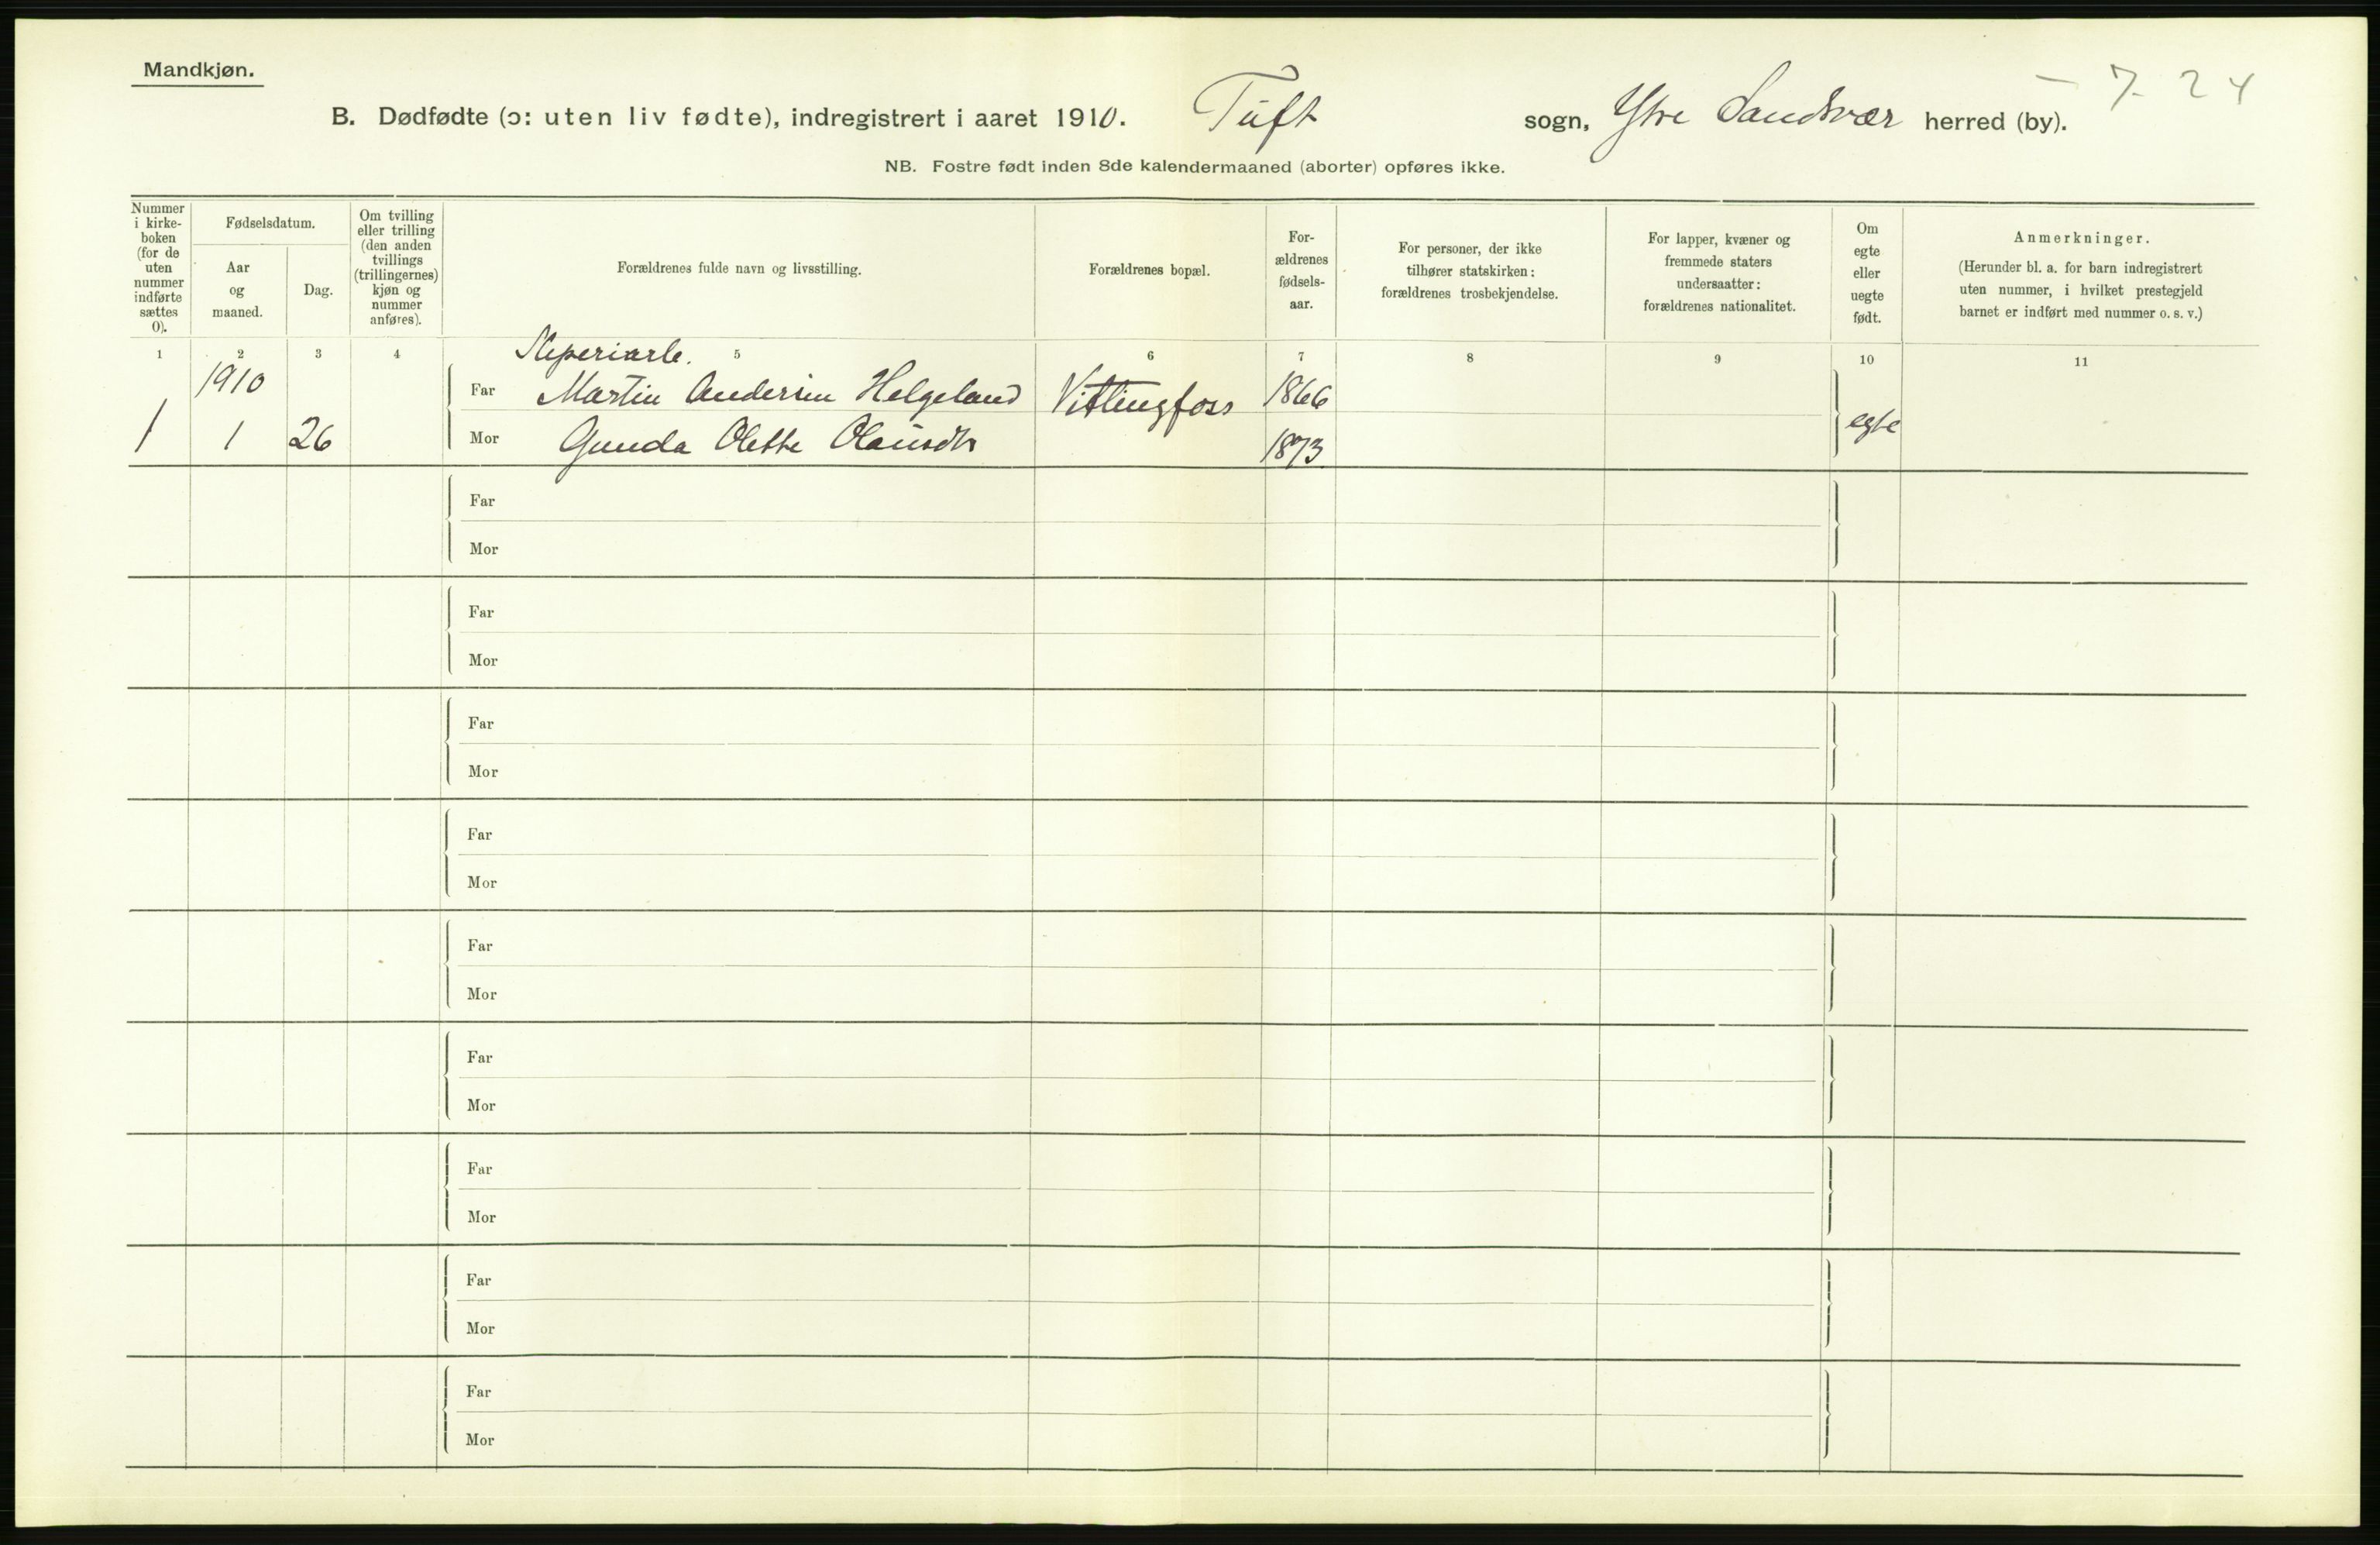 Mandkjøn.
B. Dødfødte (ɔ: uten liv fødte), indregistrert i aaret 1910. Tuft sogn, Ytre Sandsvær herred (by). – 7. 24
NB. Fostre født inden 8de kalendermaaned (aborter) opføres ikke.
Nummer
i kirke-
boken
(for de
uten
nummer
indførte
sættes
0).
Fødselsdatum.
Aar
og
maaned.
Dag.
Om tvilling
eller trilling
(den anden
tvillings
(trillingernes)
kjøn og
nummer
anføres).
Forældrenes fulde navn og livsstilling.
Forældrenes bopæl.
For-
ældrenes
fødsels-
aar.
For personer, der ikke
tilhører statskirken:
forældrenes trosbekjendelse.
For lapper, kvæner og
fremmede staters
undersaatter:
forældrenes nationalitet.
Om
egte
eller
uegte
født.
Anmerkninger.
(Herunder bl. a. for barn indregistrert
uten nummer, i hvilket prestegjeld
barnet er indført med nummer o. s. v.)
1 2 3 4 5 6 7 8 9 10 11
1910
Far Martin Andersen Helgeland Vittingfoss 1866
1 1 26 Mor Gunda Olette Olausdtr 1873 egte
Far
Mor
Far
Mor
Far
Mor
Far
Mor
Far
Mor
Far
Mor
Far
Mor
Far
Mor
Far
Mor